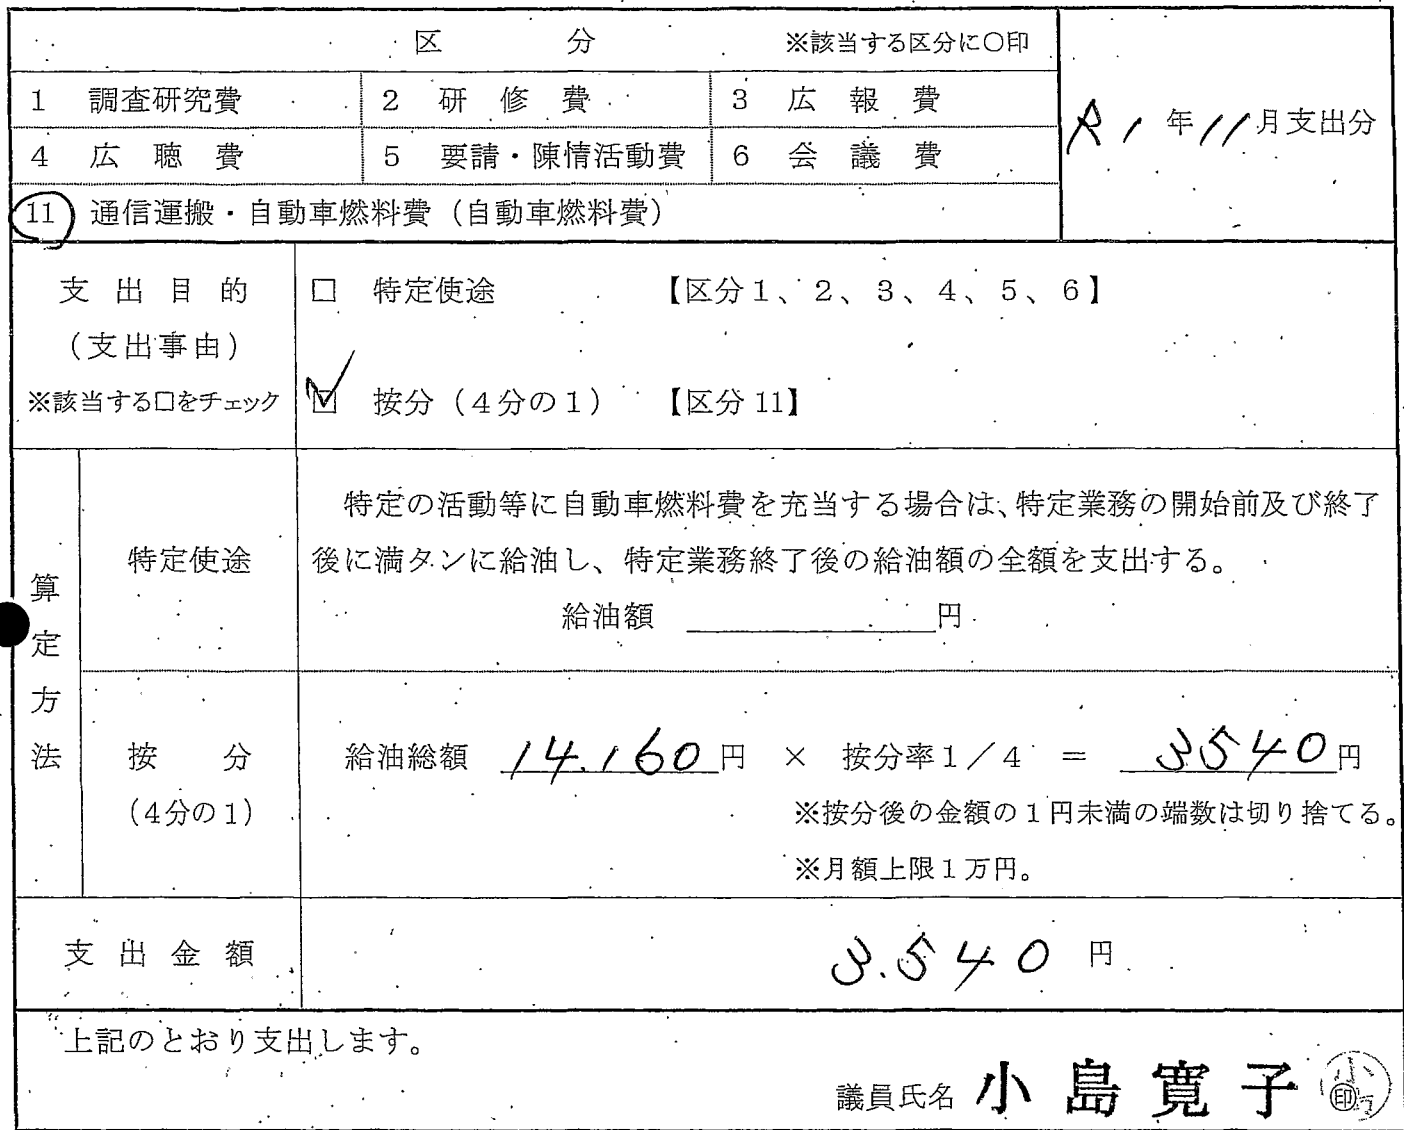 区　　分　　※該当する区分に〇印
1　調査研究費　2　研　修　費　3　広　報　費
R1年11月支出分
4　広　聴　費　5　要請・陳情活動費　6　会　議　費
11　通信運搬・自動車燃料費（自動車燃料費）
支出目的
（支出事由）
※該当する□をチェック
□　特定使途　【区分1、2、3、4、5、6】
☑　按分（4分の1）　【区分11】
算定方法
特定使途
特定の活動等に自動車燃料費を充当する場合は、特定業務の開始前及び終了
後に満タンに給油し、特定業務終了後の給油額の全額を支出する。
給油額　　　　円
按　　分
（4分の1）
給油総額　14.160円　×　按分率1／4　＝　3540円
※按分後の金額の1円未満の端数は切り捨てる。
※月額上限1万円。
支出金額　3.540　円
上記のとおり支出します。
議員氏名　小島寛子　印